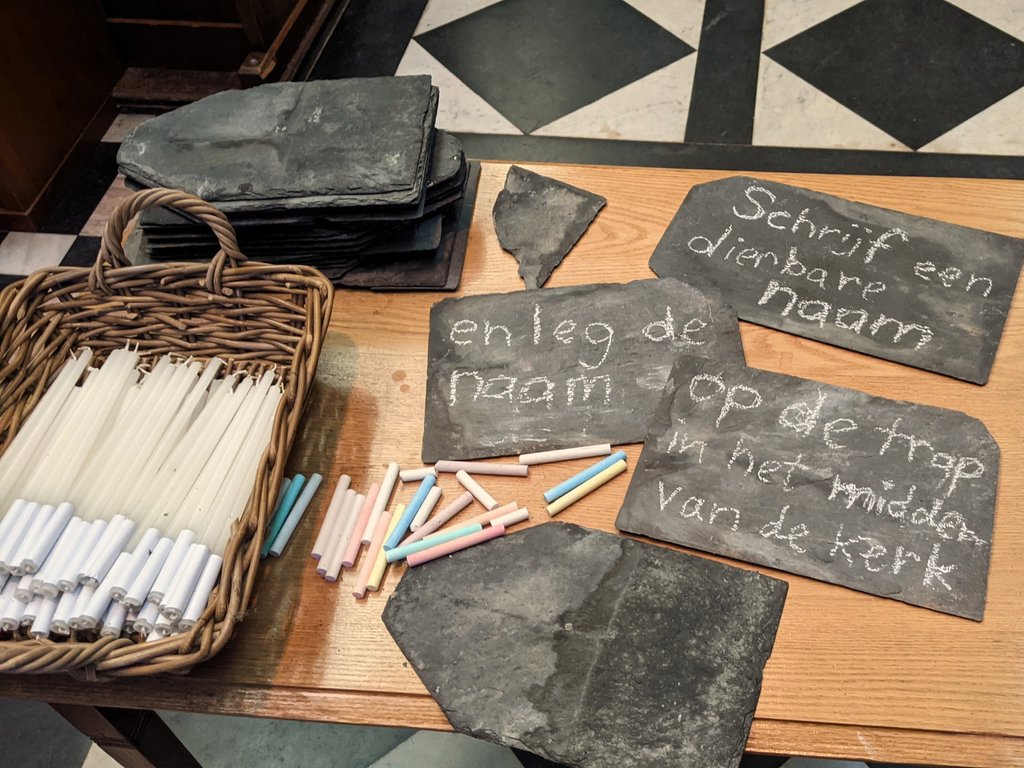 Schrijf een
dienbare
naam
en leg de
naam
op de trap
in het midden
van de kerk